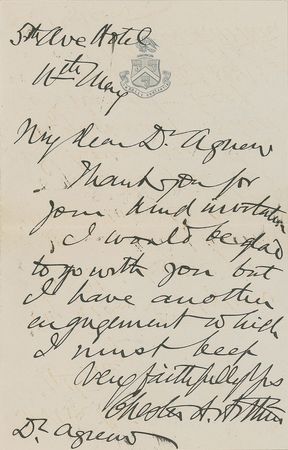 5th Ave Hotel
11th May
My Dear Dr Agnew
Thank you for
your kind invitation
I would be glad
to go with you but
I have another
engagement which
I must keep
Very faithfully yrs
Chester A. Arthur
Dr Agnew